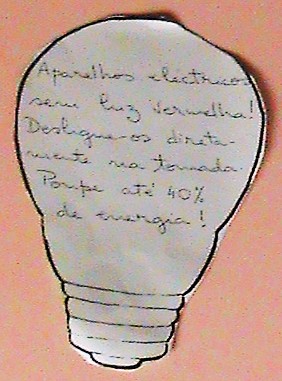 Aparelhos eléctricos
sem luz vermelha!
Desligue-os direta-
mente na tomada.
Poupe até 40%
de energia!